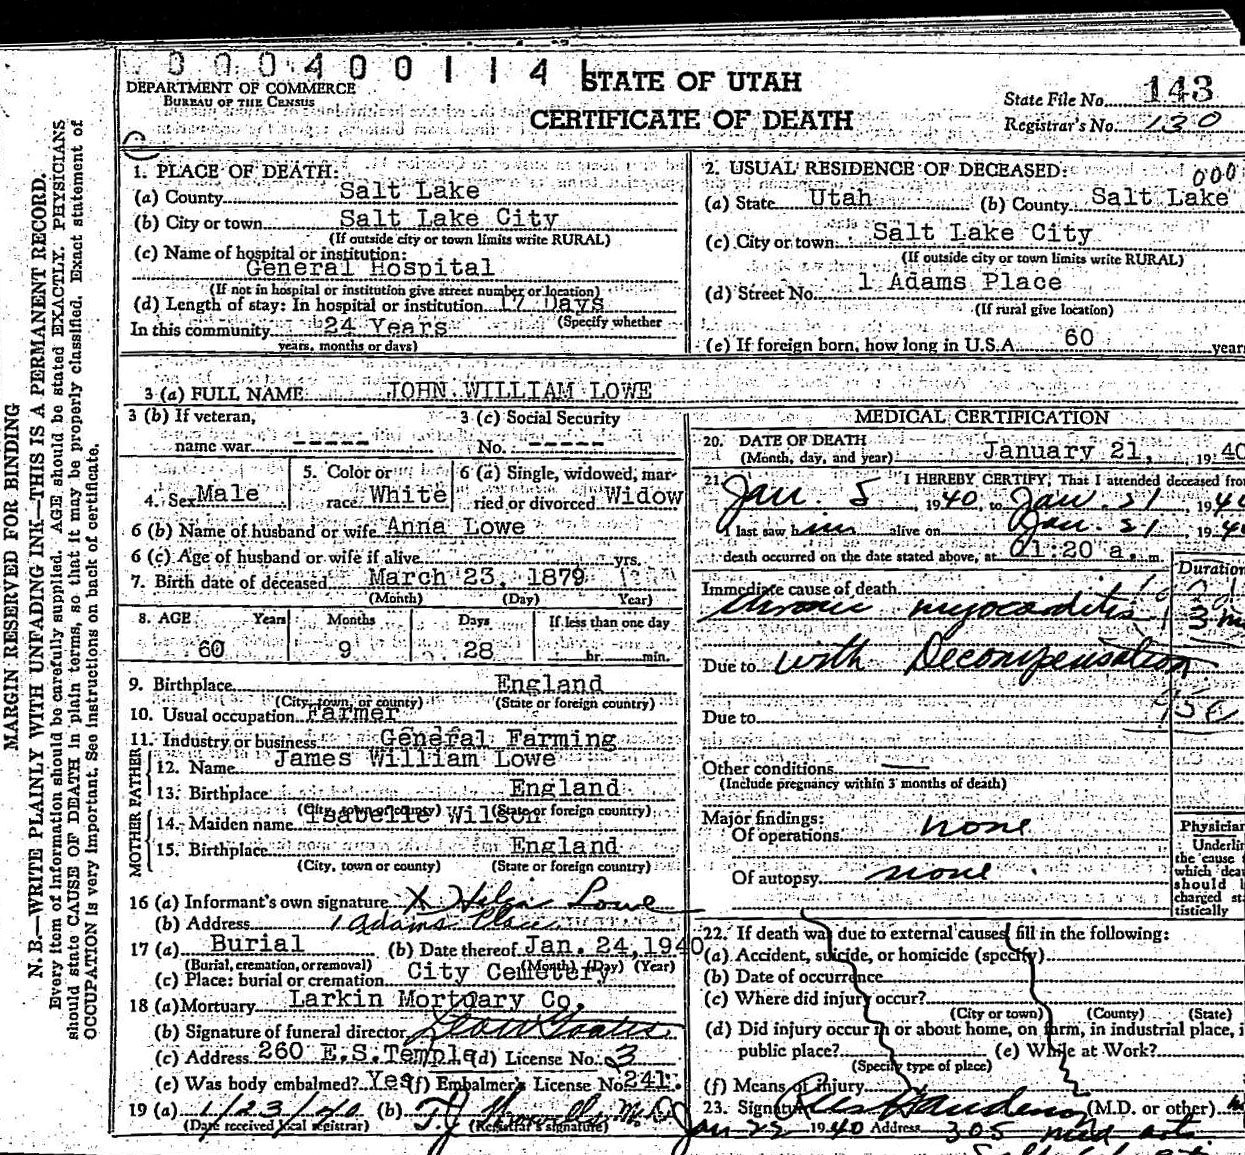 000400114
DEPARTMENT OF COMMERCE
BUREAU OF THE CENSUS
STATE OF UTAH
CERTIFICATE OF DEATH
State File No. 143
Registrar's No. 130
MARGIN RESERVED FOR BINDING
N. B.—WRITE PLAINLY WITH UNFADING INK—THIS IS A PERMANENT RECORD.
Every item of information should be carefully supplied. AGE should be stated EXACTLY. PHYSICIANS
should state CAUSE OF DEATH in plain terms, so that it may be properly classified. Exact statement of
OCCUPATION is very important. See instructions on back of certificate.
1. PLACE OF DEATH:
(a) County Salt Lake
(b) City or town Salt Lake City
(If outside city or town limits write RURAL)
(c) Name of hospital or institution:
General Hospital
(If not in hospital or institution give street number or location)
(d) Length of stay: In hospital or institution 17 Days
(Specify whether
In this community 24 Years
years, months or days)
2. USUAL RESIDENCE OF DECEASED:
000
(a) State Utah (b) County Salt Lake
(c) City or town Salt Lake City
(If outside city or town limits write RURAL)
(d) Street No. 1 Adams Place
(If rural give location)
(e) If foreign born, how long in U.S.A. 60 year
3 (a) FULL NAME JOHN WILLIAM LOWE
3 (b) If veteran,
name war -----
3 (c) Social Security
No. -----
4. Sex Male
5. Color or
race White
6 (a) Single, widowed, mar-
ried or divorced Widow
6 (b) Name of husband or wife Anna Lowe
6 (c) Age of husband or wife if alive yrs.
7. Birth date of deceased March 23, 1879
(Month) (Day) Year)
8. AGE Years Months Days If less than one day
60 9 28 hr. min.
9. Birthplace England
(City, town, or county) (State or foreign country)
10. Usual occupation Farmer
11. Industry or business General Farming
FATHER
12. Name James William Lowe
13. Birthplace England
(City, town or county) (State or foreign country)
MOTHER
14. Maiden name Isabelle Wilson
15. Birthplace England
(City, town or county) (State or foreign country)
16 (a) Informant's own signature X Hilda Lowe
(b) Address 1 Adams Place
17 (a) Burial (b) Date thereof Jan. 24, 1940
(Burial, cremation, or removal) (Month) (Day) (Year)
(c) Place: burial or cremation City Cemetery
18 (a) Mortuary Larkin Mortuary Co.
(b) Signature of funeral director
(c) Address 260 E.S.Temple (d) License No. 3
(e) Was body embalmed? Yes (f) Embalmer's License No. 241.
19 (a) 1/23/40 (b) T.J. M.D.
(Date received local registrar) (Registrar's signature)
MEDICAL CERTIFICATION
20. DATE OF DEATH
(Month, day, and year) January 21, 19 40
21. I HEREBY CERTIFY, That I attended deceased from
Jan. 5, 1940, to Jan. 21, 1940
I last saw him alive on Jan. 21 1940
death occurred on the date stated above, at 01:20 a.m.
Duration
Immediate cause of death
Chronic myocarditis 3 m
Due to with Decompensation
Due to
Other conditions
(Include pregnancy within 3 months of death)
Major findings:
Of operations none
Of autopsy none
Physician
Underline
the cause
which dea
should
charged sta
tistically
22. If death was due to external causes, fill in the following:
(a) Accident, suicide, or homicide (specify)
(b) Date of occurrence
(c) Where did injury occur?
(City or town) (County) (State)
(d) Did injury occur in or about home, on farm, in industrial place, i
public place? (e) While at Work?
(Specify type of place)
(f) Means of injury
23. Signature (M.D. or other)
Jan 22 1940 Address 305 med arts.